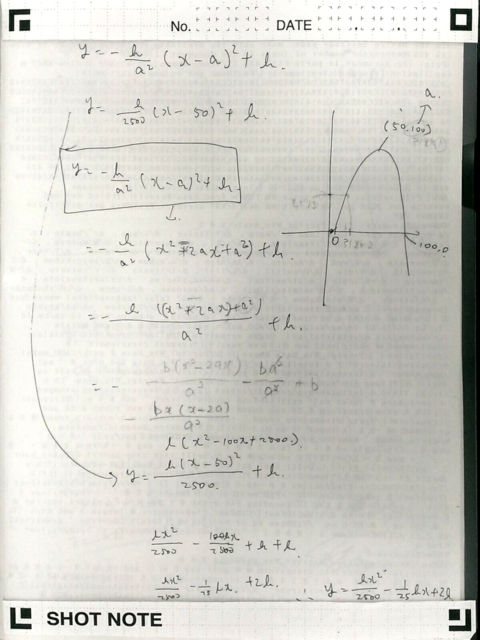 No. DATE
y = - h/a² (x - a)² + h.
y = h/2500 (x - 50)² + h.
a.
(50,100)
y = - h/a² (x - a)² + h.
0
100,0
= - h/a² (x² - 2ax + a²) + h.
= - h((x² - 2ax) + a²)/a² + h.
= - b(x² - 2ax)/a² - ba²/a² + b
- bx(x - 2a)/a²
h(x² - 100x + 2500).
y = h(x - 50)²/2500. + h.
hx²/2500 - 100hx/2500 + h + h
hx²/2500 - 1/25 hx. + 2h. ∴ y = hx²/2500 - 1/25 hx + 2h
SHOT NOTE